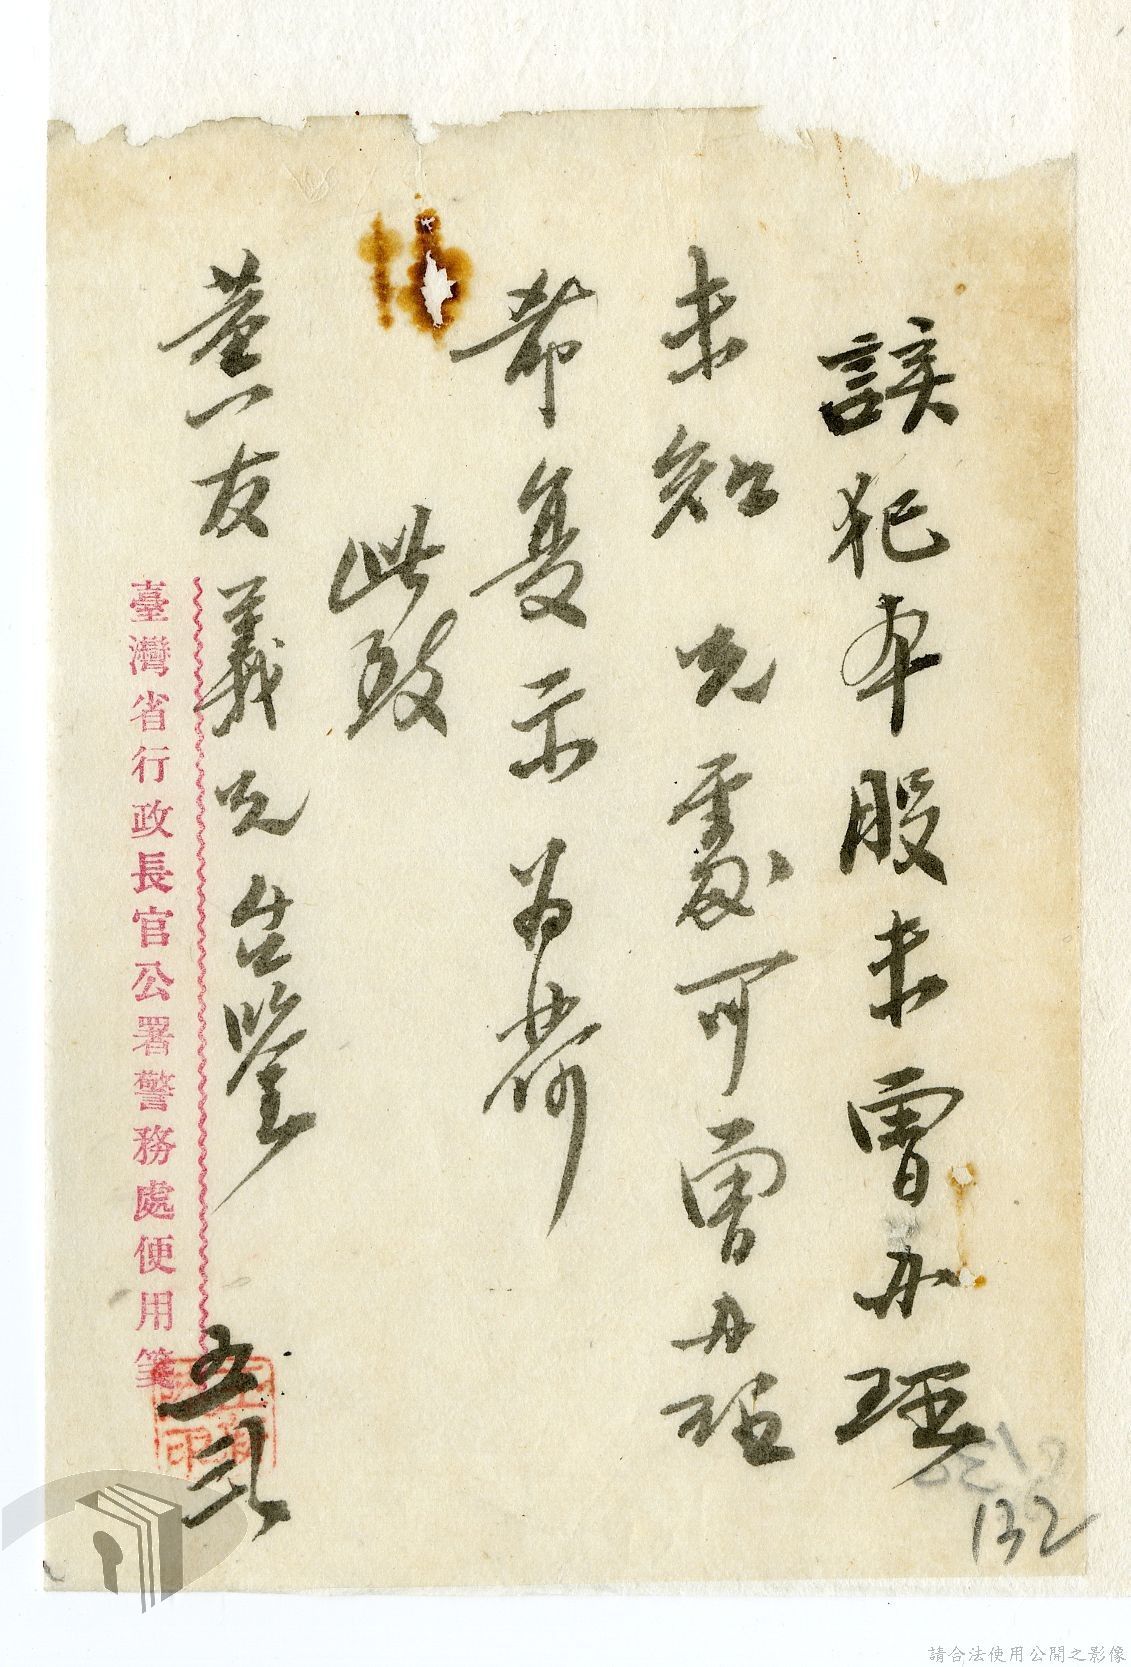 該犯本股未曾办理
未知 兄處可曾办理
希复示为荷
此致
董友義兄台鑒
臺灣省行政長官公署警務處便用箋
132
請合法使用公開之影像